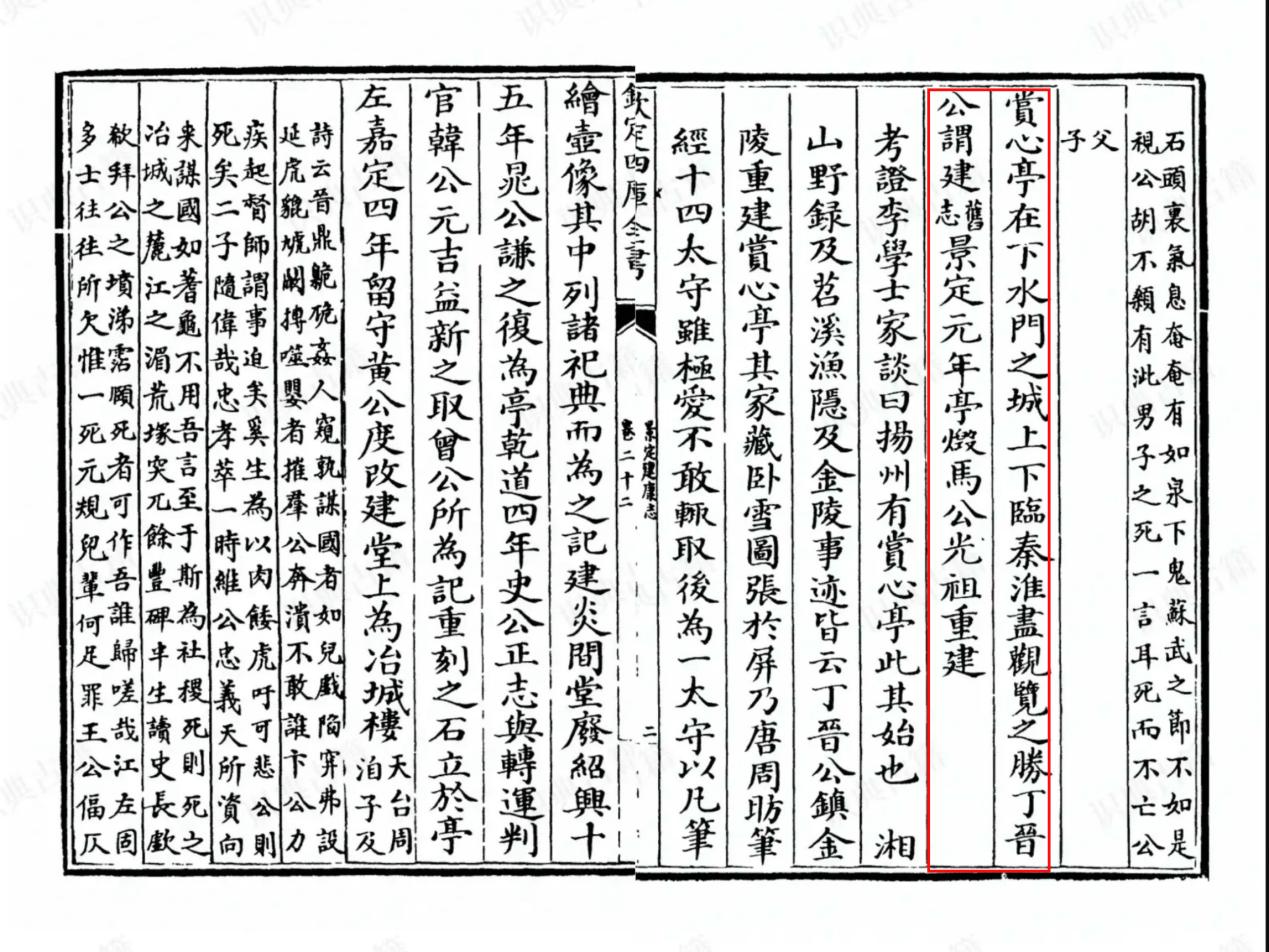 石頭裏氣息奄奄有如泉下鬼蘇武之節不如是
視公胡不顙有泚男子之死一言耳死而不亡公
父
子
賞心亭在下水門之城上下臨秦淮盡觀覽之勝丁晉
公謂建舊志景定元年亭燬馬公光祖重建
考證李學士家談曰揚州有賞心亭此其始也 湘
山野録及苕溪漁隱及金陵事迹皆云丁晉公鎮金
陵重建賞心亭其家藏卧雪圖張於屏乃唐周昉筆
經十四太守雖極愛不敢輒取後為一太守以凡筆
欽定四庫全書
景定建康志
卷二十二
二
繪壺像其中列諸祀典而為之記建炎間堂廢紹興十
五年晁公謙之復為亭乾道四年史公正志與轉運判
官韓公元吉益新之取曾公所為記重刻之石立於亭
左嘉定四年留守黄公度改建堂上為冶城樓天台周
洎子及
詩云晉鼎鼿硊姦人窺執謀國者如兒戲陷穽弗設
延虎貔虓闞摶噬嬰者摧羣公奔潰不敢誰卞公力
疾起督師謂事迫矣奚生為以肉餧虎吁可悲公則
死矣二子隨偉哉忠孝萃一時維公忠義天所資向
來謀國如蓍龜不用吾言至于斯為社稷死則死之
冶城之麓江之湄荒塚突兀餘豐碑半生讀史長歔
欷拜公之墳涕霑頤死者可作吾誰歸嗟哉江左固
多士往往所欠惟一死元規兒輩何足罪王公偪仄
識典古籍